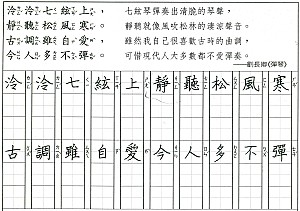 泠泠七絃上，
靜聽松風寒。
古調雖自愛，
今人多不彈。
七絃琴彈奏出清脆的琴聲，
靜聽就像風吹松林的淒涼聲音。
雖然我自己很喜歡古時的曲調，
可惜現代人大多數都不愛彈奏。
——劉長卿〈彈琴〉
泠泠七絃上靜聽松風寒
古調雖自愛今人多不彈